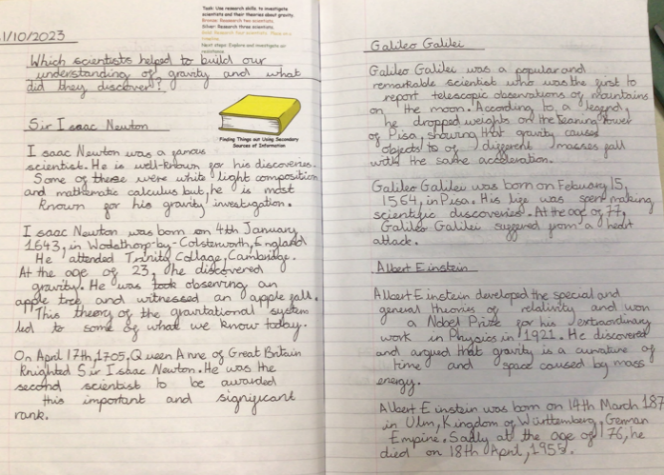 Task: Use research skills to investigate
scientists and their theories about gravity.
Bronze: Research two scientists.
Silver: Research three scientists.
Next steps: Explore and investigate air
resistance
1/10/2023
Which scientists helped to build our
understanding of gravity and what
did they discover?
Finding Things out Using Secondary
Sources of Information
Sir Isaac Newton
Isaac Newton was a famous
scientist. He is well-known for his discoveries.
Some of these were white light composition
and mathematic calculus but, he is most
known for his gravity investigation.
Isaac Newton was born on 4th January
1643, in Woolsthorp-by-Colsterworth, England
He attended Trinity Collage, Cambridge.
At the age of 23, he discovered
gravity. He was observing an
apple tree and witnessed an apple fall.
This theory of the gravitational system
led to some of what we know today.
On April 17th, 1705, Queen Anne of Great Britain
Knighted Sir Isaac Newton. He was the
second scientist to be awarded
this important and significant
rank.
Galileo Galilei
Galileo Galilei was a popular and
remarkable scientist who was the first to
report telescopic observations of mountains
on the moon. According to a legend,
he dropped weights on the leaning tower
of Pisa, showing that gravity caused
objects to of different masses fall
with the same acceleration.
Galileo Galilei was born on Febuary 15,
1564, in Pisa. His life was spent making
scientific discoveries. At the age of 77,
Galileo Galilei suffered from a heart
attack.
Albert Einstein
Albert Einstein developed the special and
general theories of relativity and won
a Nobel Prize for his extraordinary
work in Physics in 1921. He discovered
and argued that gravity is a curvature of
time and space caused by mass
energy.
Albert Einstein was born on 14th March 187
in Ulm, Kingdom of Württemberg, German
Empire. Sadly at the age of 76, he
died on 18th April, 1955.